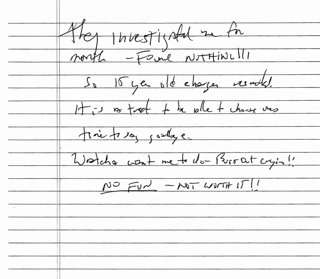 They investigated me for
month – Found NOTHING!!!
So 15 year old charges resulted.
It is a treat to be able to choose ones
time to say goodbye.
Watcha want me to do – Burst out cryin!!
NO FUN – NOT WORTH IT!!